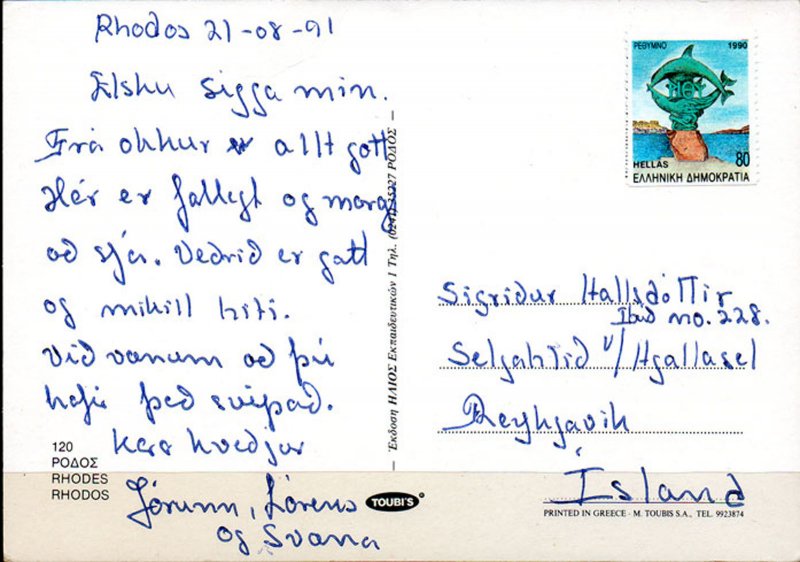 Rhodos 21-08-91
Elsku Sigga mín.
Frá okkur er allt gott
Hér er fallegt og margt
að sjá. Veðrið er gott
og mikill hiti.
Við vonum að þú
hafir það svipað.
Kærar kveðjur
Jórunn, Lórens
og Svana
120
ΡΟΔΟΣ
RHODES
RHODOS
Έκδοση ΗΛΙΟΣ Εκπαιδευτικών 1 Τηλ. (0241) 35227 ΡΟΔΟΣ
TOUBI'S
ΡΕΘΥΜΝΟ 1990
HELLAS 80
ΕΛΛΗΝΙΚΗ ΔΗΜΟΚΡΑΤΙΑ
Sigríður Hallsdóttir
Íbúð no. 228.
Seljahlíð v/Hjallasel
Reykjavík
Ísland
PRINTED IN GREECE - M. TOUBIS S.A., TEL. 9923874